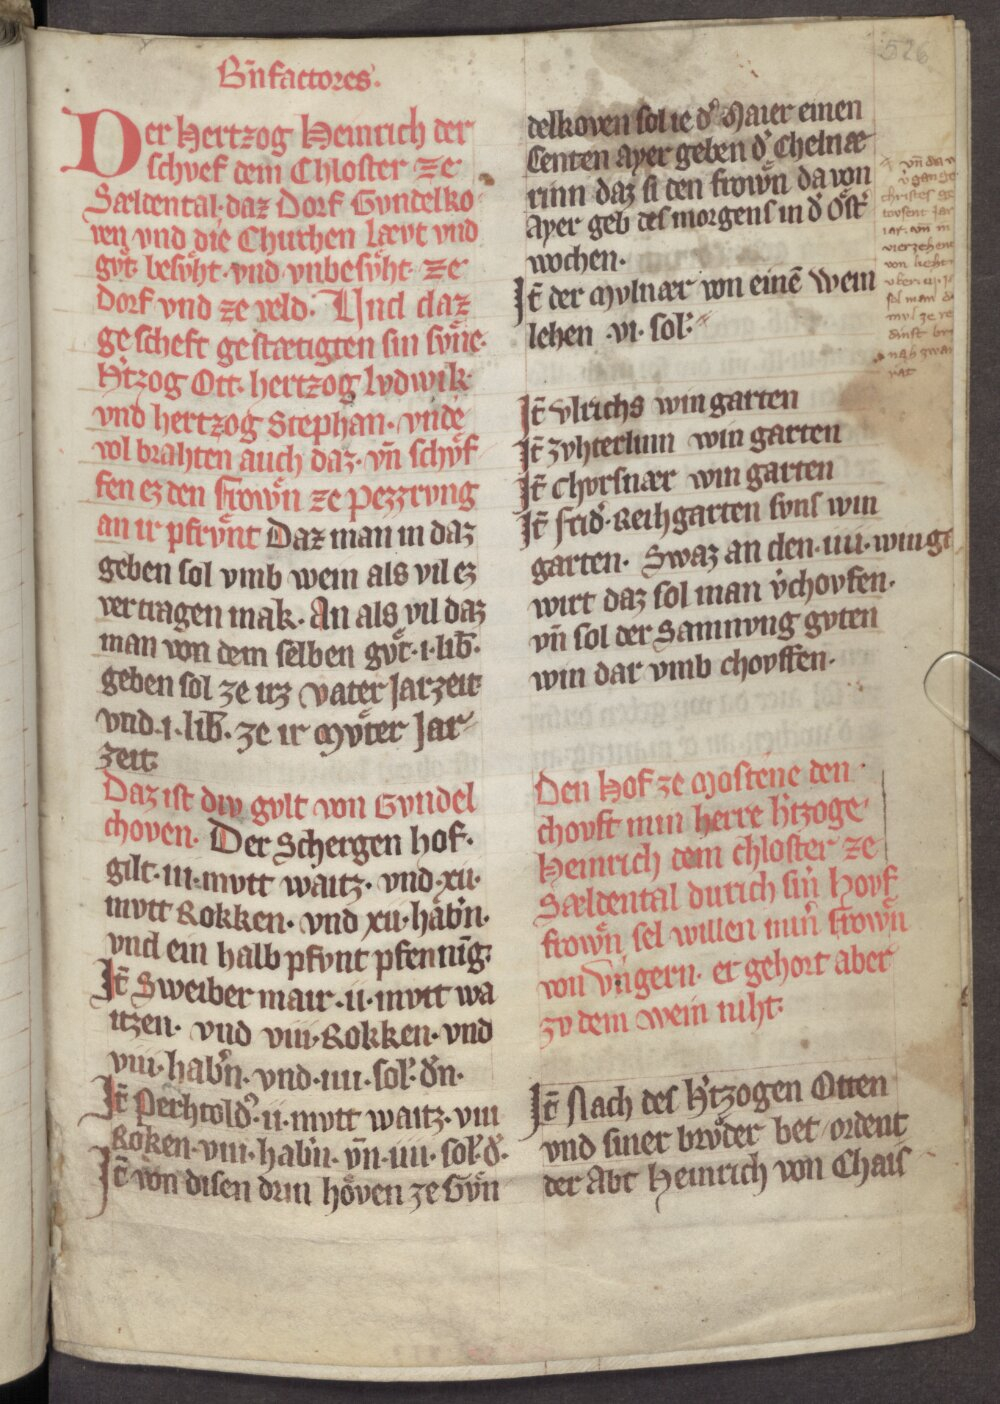 Bn̄factores.
Der Hertzog Heinrich der
schvef dem Chloster ze
Sældental. daz Dorf Gvndelko
ven vnd die Chirchen Lævt vnd
gv̊t. besv̊ht. vnd vnbesv̊ht. ze
Dorf vnd ze veld. Und daz
gescheft gestætigten sin svͤne.
H̓tzog Ott. hertzog Lvdwik
vnd hertzog Stephan. vnde
vol brahten auch daz. vn̄ schv̊f
fen ez den frowͤn ze pezzrvng
an ir pfrvͤnt Daz man in daz
geben sol vmb wein als vil ez
vertragen mak. An als vil daz
man von dem selben gv̊t. i. lib̄.
geben sol ze irz vater Jarzeit
vnd. i. lib̄. ze ir Mv̊ter Jar
zeit.
Daz ist div gvlt von Gvndel
choven. Der Schergen hof.
gilt. iii. mvtt waitz. vnd. xii.
mvtt Rokken. vnd xii. hab̓n.
vnd ein halb pfvnt pfenning.
It̄ Sweiber mair. ii. mvtt wa
itzen. vnd viii. Rokken. vnd
viii. hab̓n. vnd. iiii. sol̓. d̓n.
It̄ Perhtold̓. ii. mvtt waitz. viii
Roken. viii. hab̓n. vn̄. iiii. sol̓. d̓.
It̄ von disen drin hoͤven ze Gvͤn
delkoven sol ie d̓ Maier einen
Centen Ayer geben d̓ Chelnæ
rinn daz si den frowͤn da von
Ayer geb des morgens in d̓ Ost̓
wochen.
It̄ der Mvlnær von einē wein
lehen. vi. sol̓.
It̄ Vlrichs win garten
It̄ Zvhterlinn win garten
It̄ Chvrsnær win garten
It̄ frid̓. Reihgarten svns win
garten. Swaz an den. iiii. wingt
wirt daz sol man v̓chovfen.
vn̄ sol der Samnvng gvten
win dar vmb chovffen.
Den Hof ze Mostene den
chovft min herre h̓tzoge
Heinrich dem chloster ze
Sældental durich sin̓ Hovf
frowͤn sel willen min̓ frowͤn
von Vngern. er gehort aber
zv dem wein niht.
It̄ Nach des h̓tzogen Otten
vnd siner brv̊der bet ordent
der Abt Heinrich von Chais
526
vn̄ da v
christes ge
tovsent jar
iar. vn̄ in
vierzehen
von lieht
sol man
mvl ze re
dinst
nah zwai
rat